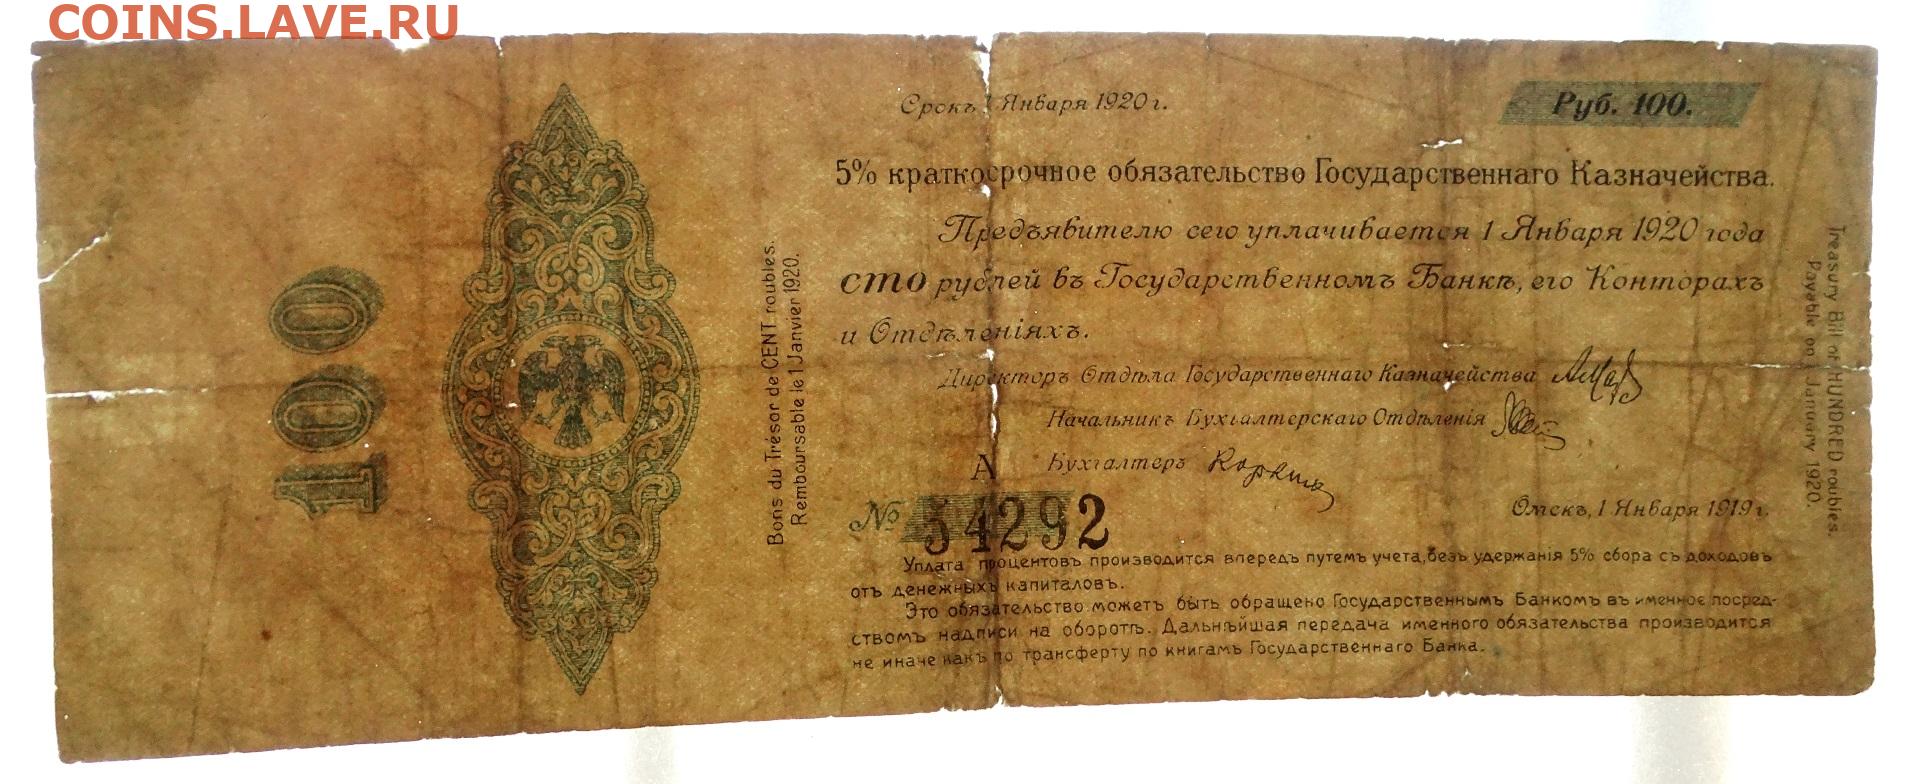 COINS.LAVE.RU
Срокъ 1 Января 1920 г.
Руб. 100.
5% краткосрочное обязательство Государственнаго Казначейства.
Предъявителю сего уплачивается 1 Января 1920 года
сто рублей въ Государственномъ Банкѣ, его Конторахъ
и Отдѣленіяхъ.
Директоръ Отдѣла Государственнаго Казначейства
Начальникъ Бухгалтерскаго Отдѣленія
Бухгалтеръ
А
№ 54292
Омскъ, 1 Января 1919 г.
Уплата процентовъ производится впередъ путемъ учета, безъ удержанія 5% сбора съ доходовъ
отъ денежныхъ капиталовъ.
Это обязательство можетъ быть обращено Государственнымъ Банкомъ въ именное посред-
ствомъ надписи на оборотѣ. Дальнѣйшая передача именного обязательства производится
не иначе какъ по трансферту по книгамъ Государственнаго Банка.
100
Bons du Trésor de CENT roubles.
Remboursable le 1 Janvier 1920.
Treasury Bill of HUNDRED roubles.
Payable on 1 January 1920.